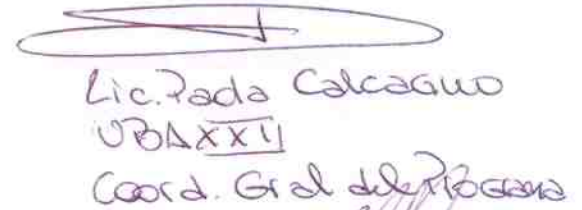 Lic. Paola Calcagno
UBA XXII
Coord. Gral del Programa